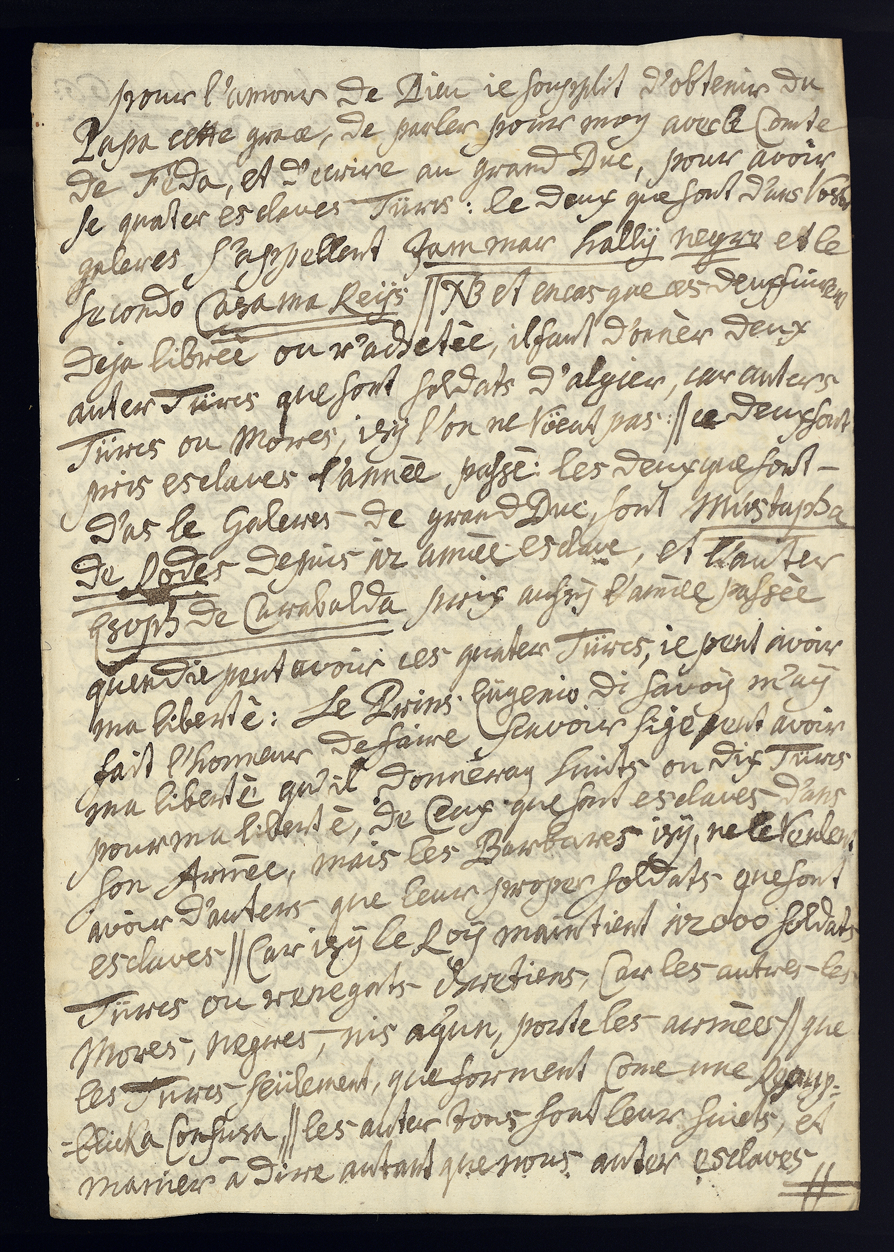 pour l'amour de Dieu ie soupplit d'obtenir du
Papa cette grace, de parler pour moy avec le Comte
de Fede, et d'ecrire au grand Duc, pour avoir
se quater esclaves Türcs: le deux que sont d'ans
galeres s'appellent Jammar hallÿ negro et le
secondo Casama Reÿs || NB et encas que ces deux
deja libreé ou r'achetée, il faut d'onner deux
auter Türcs que sont soldats d'algier, car auters
Türcs ou Mores, icÿ l'on ne Vöent pas: || ce deux sont
pris esclaves l'année passé: les deux que sont –
d'as le Galeres de grand Duc, sont Mustapha
de Rodes depuis 12 année esclave, et l'auter
Esoph de Carabalda prix aussÿ l'année passée
quendie peut avoir ces quater Türcs, ie peut avoir
ma liberté: Le Prins Eugenio di Savoÿ m'aÿ
fait l'honneur de faire scavoir si ge peut avoir
ma liberté qu'il donneray huits ou dix Türcs
pour ma liberté, de Ceux que sont esclaves d'ans
son Armée, mais les Barbares icÿ, ne le Veulent
avoir d'auters que leur proper soldats que sont
esclaves || Car icÿ le Roÿ maintient 12000 soldats
Türcs ou renegats chretiens, Car les autres les
Mores, negres, nis aqun, porte les armées || que
les Turcs seülement, que forment come une Repup=
=blicka Confusa, || les auter tous sont leur suiets, et
manier à dire autant que nous auter esclaves